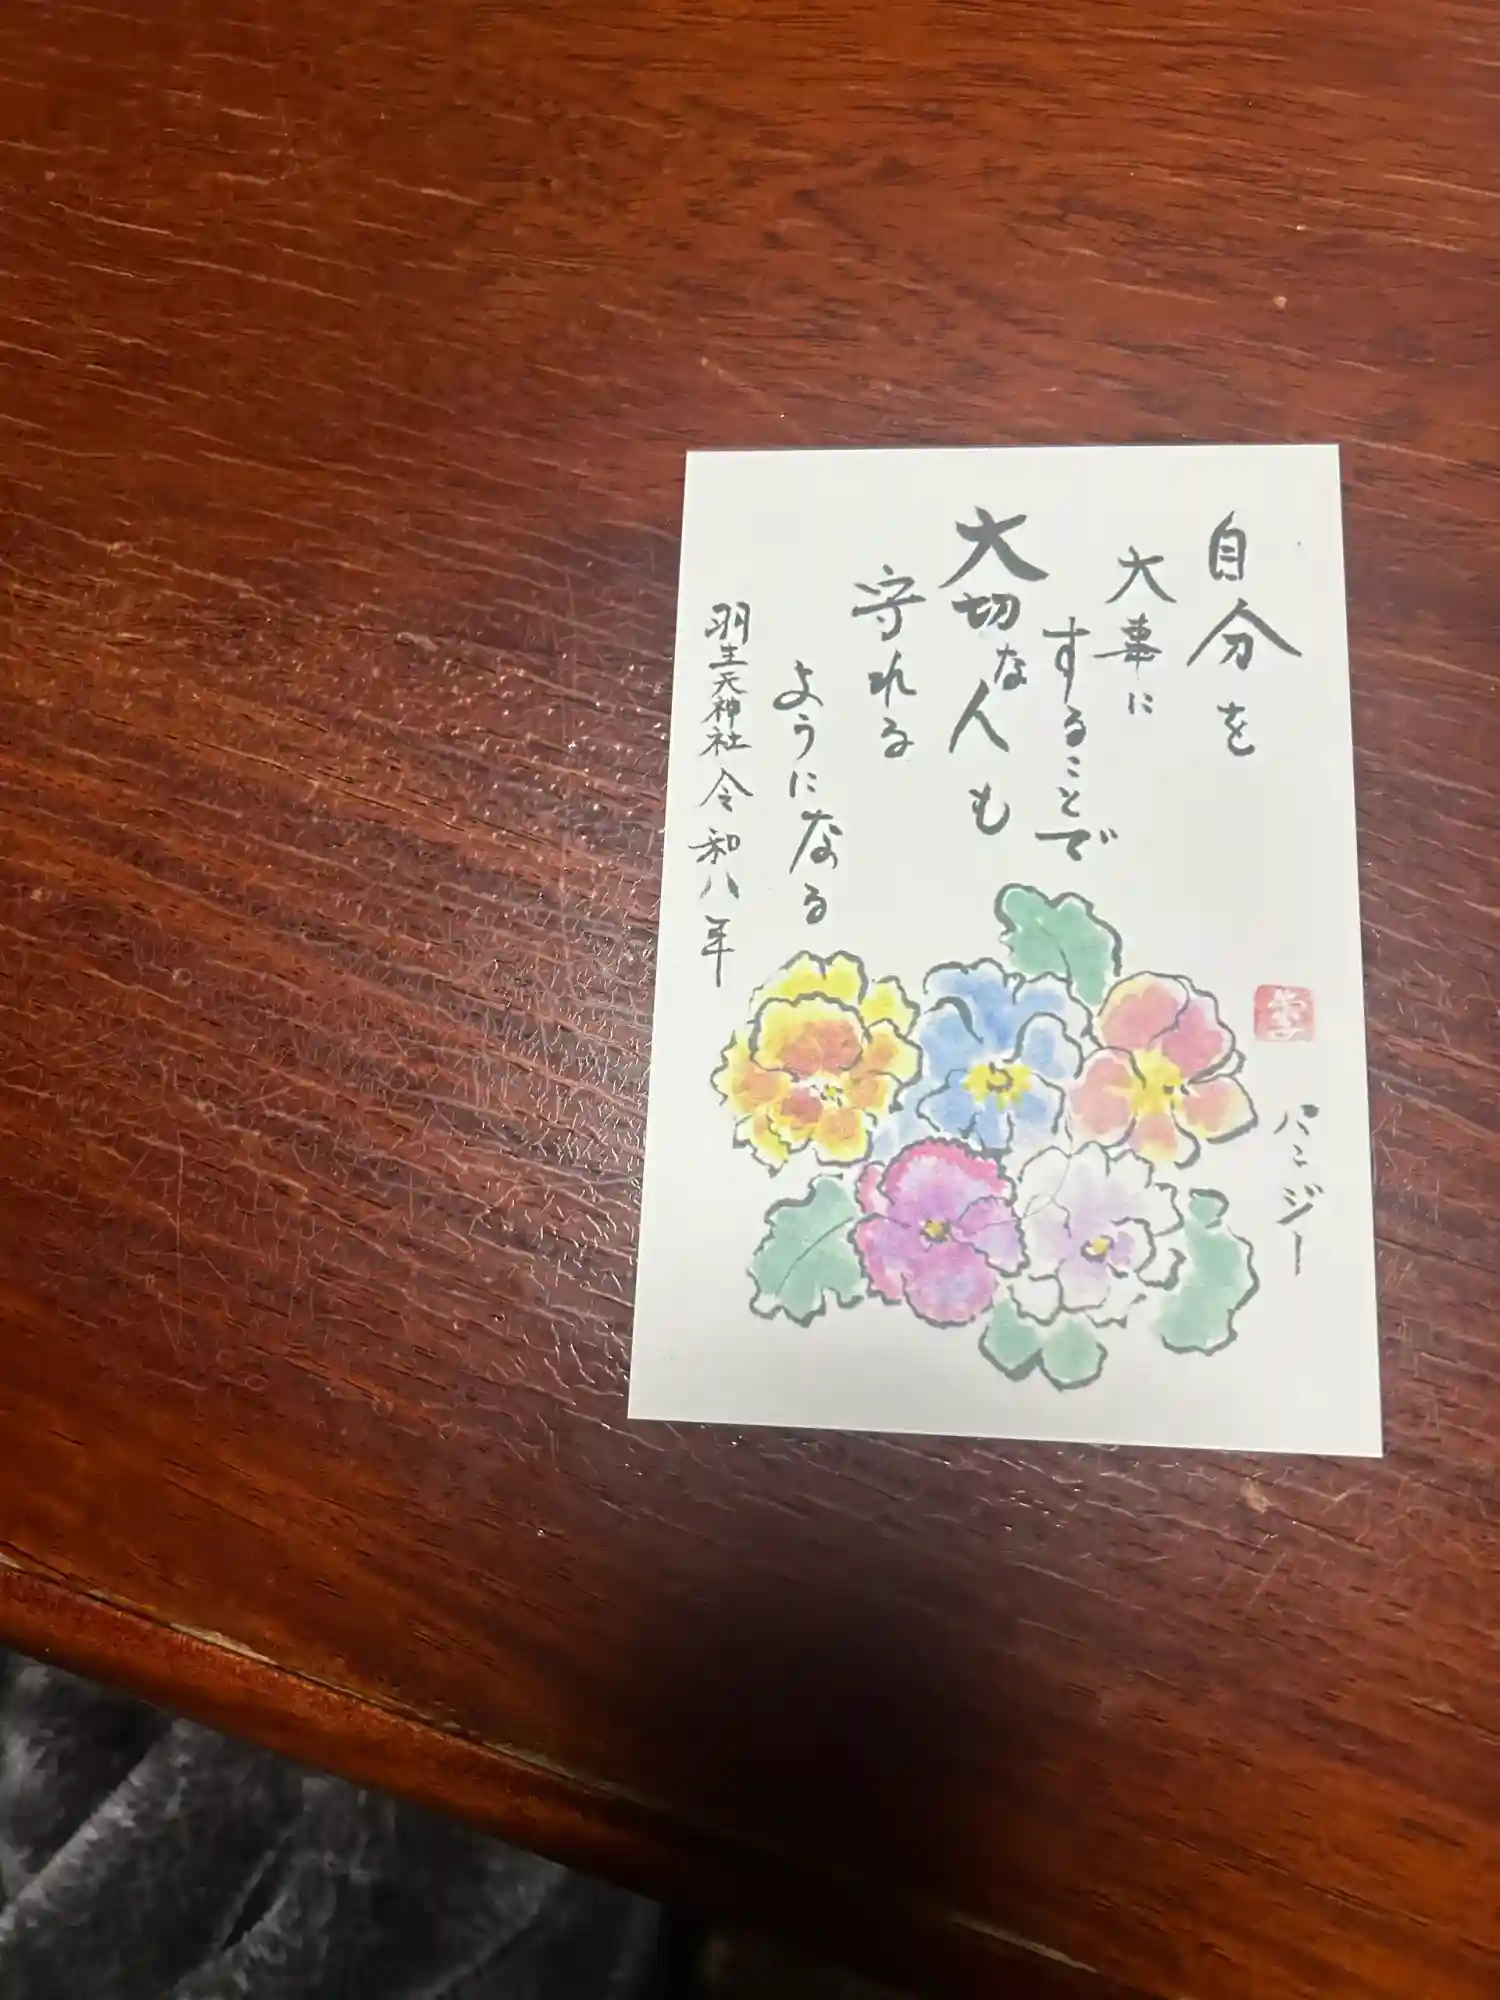 自分を
大事に
することで
大切な人も
守れる
ようになる
羽生天神社 令和八年
パンジー